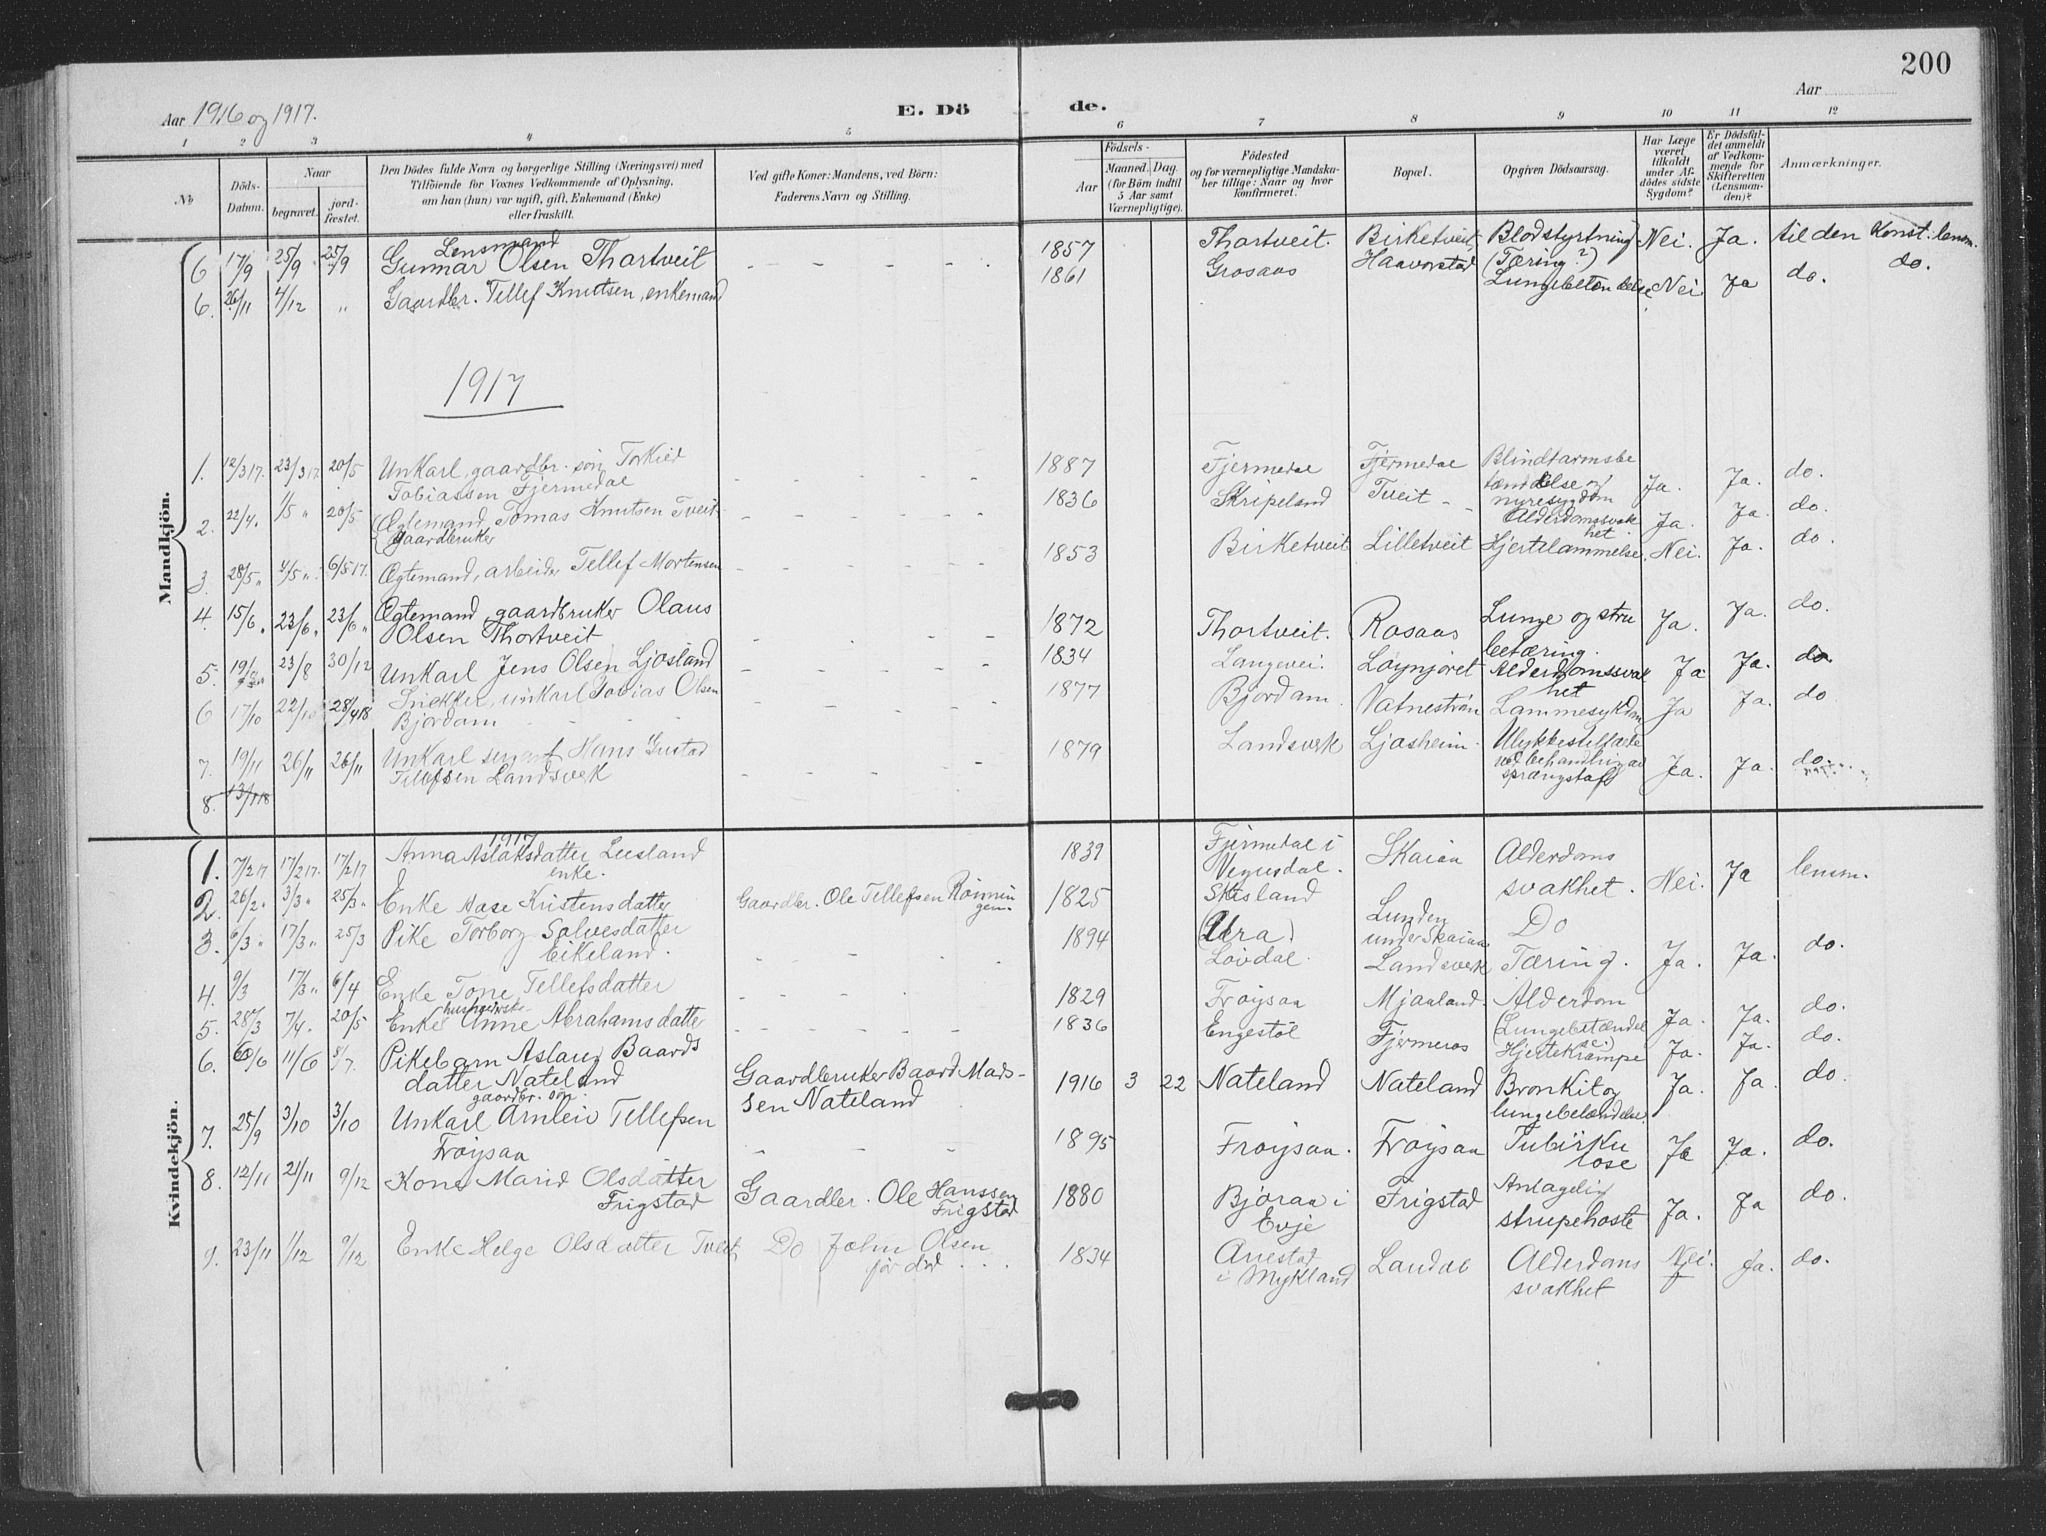 200
Aar 1916 og 1917.
E. Dö
de.
Aar
1 2 3 4 5 6 7 8 9 10 11 12
No
Döds-
Datum.
Naar
begravet.
jord-
fæstet.
Den Dödes fulde Navn og borgerlige Stilling (Næringsvei) med
Tilföiende for Voxnes Vedkommende af Oplysning,
om han (hun) var ugift, gift, Enkemand (Enke)
eller fraskilt.
Ved gifte Koner: Mandens, ved Börn:
Faderens Navn og Stilling.
Födsels-
Aar
Maaned. Dag.
(for Börn indtil
5 Aar samt
Værnepligtige).
Födested
og for værnepligtige Mandska-
ber tillige: Naar og hvor
konfirmeret.
Bopæl.
Opgiven Dödsaarsag.
Har Læge
været
tilkaldt
under Af-
dödes sidste
Sygdom?
Er Dödsfal-
det anmeldt
af Vedkom-
mende for
Skifteretten
(Lensman-
den)?
Anmærkninger.
Mandkjön.
6 17/9 25/9 25/9 Lensmand
Gunnar Olsen Thortveit - - - - - 1857 Thortveit. Birketveit Blodstyrtning Nei. Ja. til den Konst. lensm.
(Tæring?)
6. 26/11 4/12 " Gaardbr. Tellef Knutsen, enkemand 1861 Grosaas Haavorstad Lungebetændelse Nei Ja do. do.
1917
1. 12/3 17. 23/3 17. 20/5 Unkarl, gaardbr. søn, Torkied
Tobiassen Fjermedal - - - - - 1887 Fjermedal Fjermedal Blindtarmsbe
tændelse og
nyresygdom Ja. Ja. do.
2. 22/4 " 1/5 " 20/5 Ægtemand, Tomas Knutsen Tveit
gaardbruker - - - - - 1836 Skripeland Tveit - - Alderdomssvak
het. Ja. Ja. do.
3. 28/5 " 4/5 " 6/5 17. Ægtemand, arbeider Tellef Mortensen - - - - - 1853 Birketveit Lilletveit Hjertelammelse. Nei. Ja. do.
4. 15/6 " 23/6 " 23/6 " Ægtemand, gaardbruker Olaus
Olsen Thortveit 1872 Thortveit. Rosaas Lunge og stru
betæring. Ja. Ja. do.
5. 23/8 30/12 Unkarl Jens Olsen Ljosland 1834 Langevei. Løynjoret Alderdomssvak
het Ja Ja. do
6 17/10 22/10 28/4 18 Snekker, unkarl Tobias Olsen
Bjordam 1877 Bjordam. Vatneström Lammesykdom Ja Ja. do
7. 19/11 26/11 26/11 Unkarl sergeant Hans Gustad
Tellefsen Landsverk 1879 Landsverk Ljosheim. Ulykkestilfælde
ved behandling av
sprængstoff Ja. Ja. do.
8. 13/1 18
Kvindekjön.
1917
1. 7/2 17 17/2 17. 17/2 17 Anna Aslaksdatter Lusland
enke. 1839 Fjermedal i
Vegusdal. Skaiaa Alderdoms
svakhet. Nei. Ja lensm.
2. 26/2 " 3/3 " 25/3 " Enke Aase Kristensdatter Gaardbr. Ole Tellefsen Rönnin
gen. 1825 Skisland
(Ura) Lunden
under Skaiaa Do
3. 6/3 " 17/3 " 25/3 Pike Torborg Salvesdatter
Eikeland. - - - - 1894 Lövdal. Landsverk Tæring. Ja. Ja. do.
4. 9/3 17/3 " 6/4 Enke Tone Tellefsdatter - - - 1829 Fröysaa Mjaaland Alderdom
(Lungebetændel
se.) Ja. Ja. do.
5. 28/3 7/4. 20/5 Enke Anne Abrahamsdatter - - - - - 1836 Engestöl Fjermeros Hjertekrampe Ja. Ja. do.
6. 6/6 11/6 8/7. Pikebarn Aslaug Baards
datter Nateland Gaardbruker Baard Mads-
sen Nateland 1916 3 22 Nateland Nateland Bronkit og
lungebetændelse. Ja. Ja. do.
7. 25/9 3/10 3/10 gaardbr. søn.
Unkarl Arnleiv Tellefsen
Fröysaa - - - 1895 Fröysaa. Fröysaa Tubirku
lose Ja Ja. do.
8. 12/11 21/11 9/12 Kone Marie Olsdatter
Frigstad Gaardbr. Ole Hanssen
Frigstad 1880 Bjoraa i
Evje Frigstad Antagelig
strupehoste Ja. Ja do.
9. 23/11 1/12 9/12 Enke Helge Olsdatter Tveit Do John Olsen
før død 1834
i Mykland Landal Alderdoms
svakhet Nei. Ja. do.